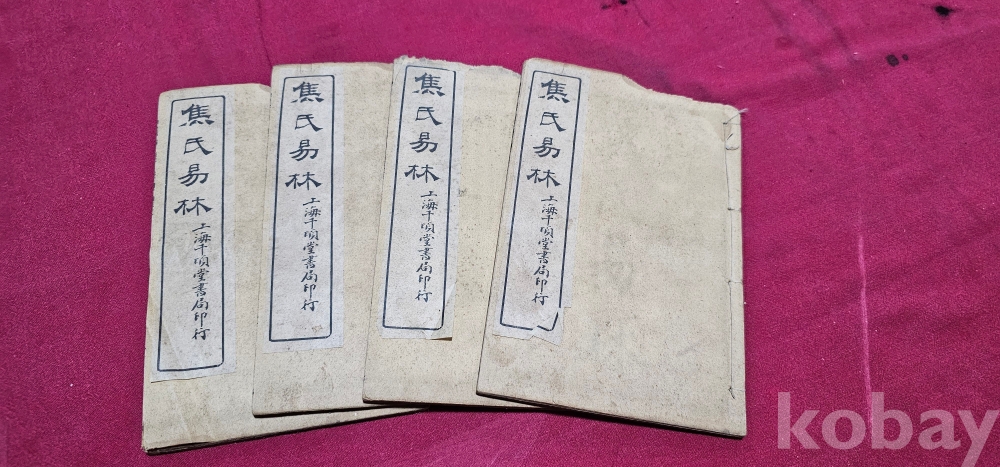 焦氏易林
上海千頃堂書局印行
焦氏易林
上海千頃堂書局印行
焦氏易林
上海千頃堂書局印行
焦氏易林
上海千頃堂書局印行
kobay